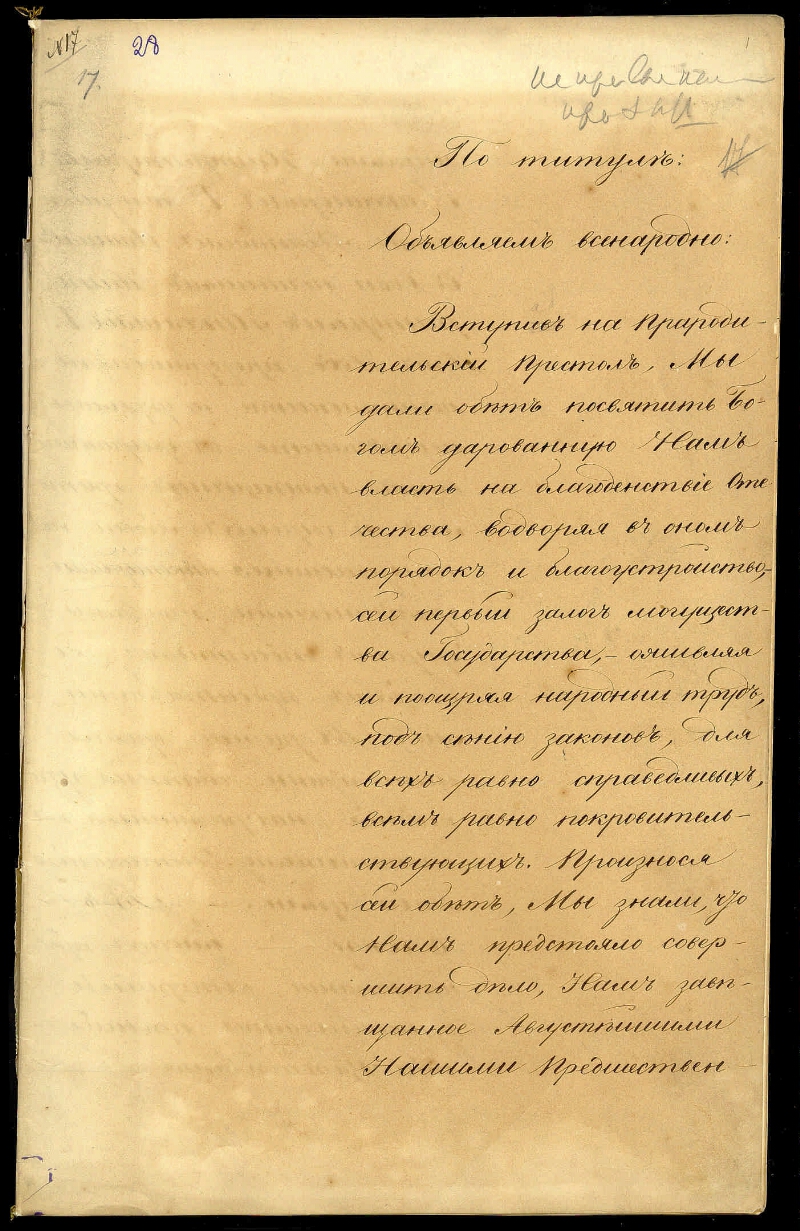 №17
28
17.
17
По титулѣ:
Объявляемъ всенародно:
Вступивъ на Прароди-
тельскій Престолъ, Мы
дали обѣтъ посвятить Бо-
гомъ дарованную Намъ
власть на благоденствіе Оте
чества, водворяя въ ономъ
порядокъ и благоустройство,-
сей первый залогъ могущест-
ва Государства,- оживляя
и поощряя народный трудъ,
подъ сѣнію законовъ, для
всѣхъ равно справедливыхъ,
всѣмъ равно покровитель-
ствующихъ. Произнося
сей обѣтъ, Мы знали, что
Намъ предстояло совер-
шить дѣло, Намъ завѣ-
щанное Августѣйшими
Нашими Предшествен-